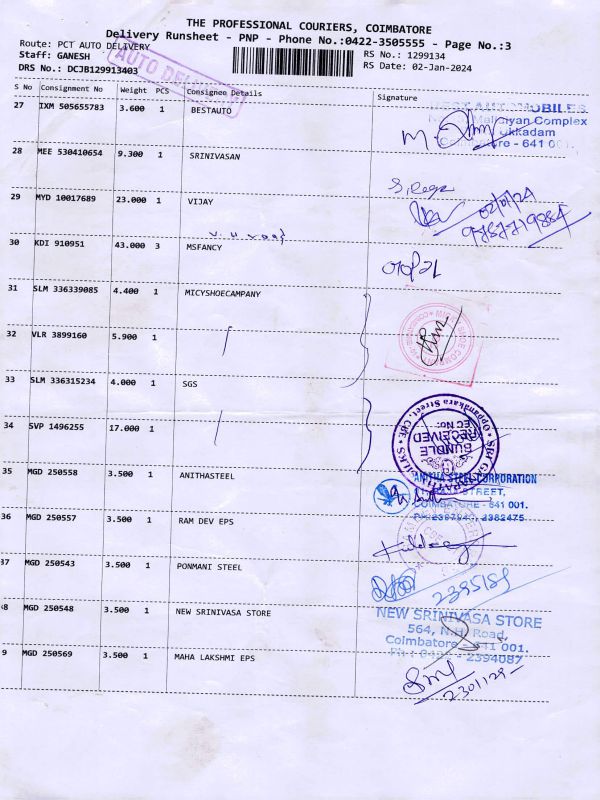 THE PROFESSIONAL COURIERS, COIMBATORE
Delivery Runsheet - PNP - Phone No.:0422-3505555 - Page No.:3
Route: PCT AUTO DELIVERY
RS No.: 1299134
Staff: GANESH
RS Date: 02-Jan-2024
DRS No.: DCJB129913403
AUTO DEL
S No Consignment No Weight PCS Consignee Details Signature
27 IXM 505655783 3.600 1 BESTAUTO
BEST AUTOMOBILES
Complex
Ukkadam
Coimbatore - 641 001.
28 MEE 530410654 9.300 1 SRINIVASAN
29 MYD 10017689 23.000 1 VIJAY
02/01/24
9787719884
30 KDI 910951 43.000 3 MSFANCY
31 SLM 336339085 4.400 1 MICYSHOECAMPANY
32 VLR 3899160 5.900 1
33 SLM 336315234 4.000 1 SGS
34 SVP 1496255 17.000 1
Oppanakara Street, CBE
BUNDLE
RECEIVED
35 MGD 250558 3.500 1 ANITHASTEEL
ANITHA STEEL CORPORATION
STREET,
COIMBATORE - 641 001.
2382475
36 MGD 250557 3.500 1 RAM DEV EPS
37 MGD 250543 3.500 1 PONMANI STEEL
2395189
38 MGD 250548 3.500 1 NEW SRINIVASA STORE
NEW SRINIVASA STORE
564, N.H. Road,
Coimbatore - 641 001.
Ph : 0422 - 2394087
9 MGD 250569 3.500 1 MAHA LAKSHMI EPS
2301129